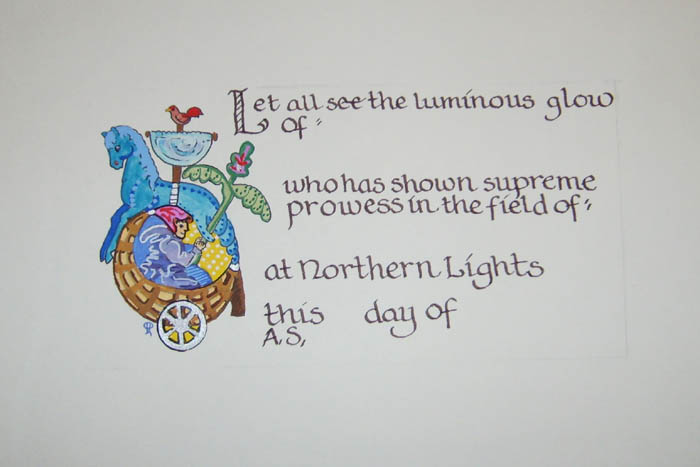 Let all see the luminous glow
of"
who has shown supreme
prowess in the field of"
at Northern Lights
this day of
A.S.